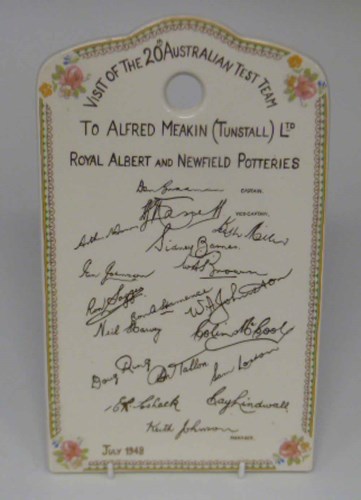 VISIT OF THE 20th AUSTRALIAN TEST TEAM
TO ALFRED MEAKIN (TUNSTALL) LTD
ROYAL ALBERT AND NEWFIELD POTTERIES
Don Bradman CAPTAIN.
A L Hassett VICE-CAPTAIN.
Arthur Morris Keith Miller
Sidney Barnes
Ian Johnson W A Brown
Ron Saggers
Sam Loxton
Neil Harvey W A Johnston
Colin McCool
Doug Ring Don Tallon
E R H Toshack Ray Lindwall
Keith Johnson MANAGER.
JULY 1948